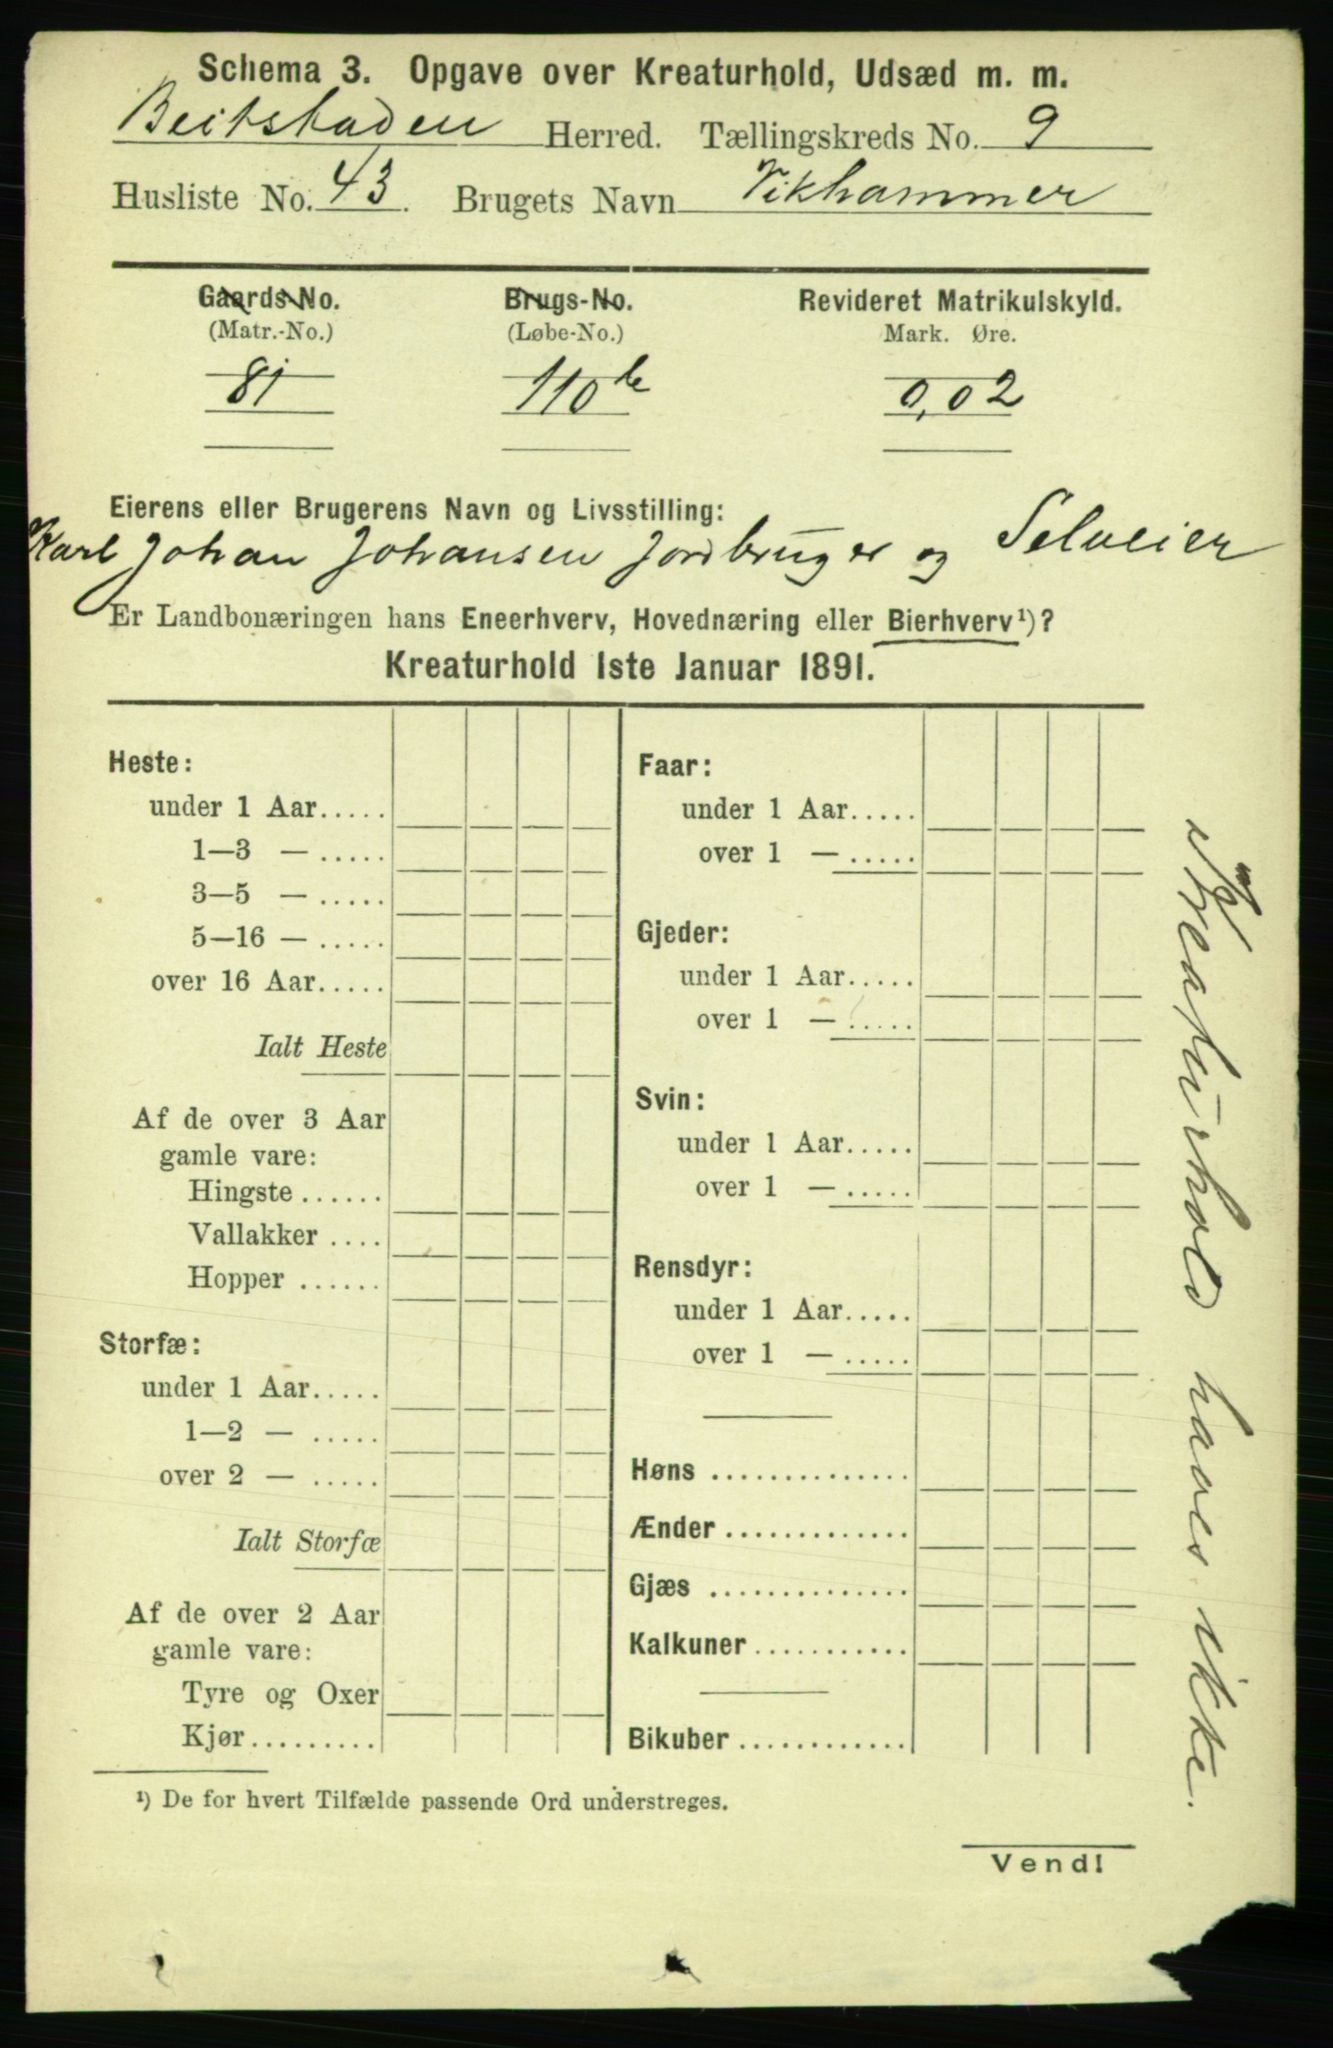 Schema 3. Opgave over Kreaturhold, Udsæd m. m.
Beitstaden Herred. Tællingskreds No. 9
Husliste No. 43. Brugets Navn Vikhammer
Gaards-No. Brugs-No. Revideret Matrikulskyld.
(Matr.-No.) (Løbe-No.) Mark. Øre.
81 110 b 0,02
Eierens eller Brugerens Navn og Livsstilling:
Karl Johan Johansen Jordbruger og Selveier
Er Landbonæringen hans Eneerhverv, Hovednæring eller Bierhverv¹)?
Kreaturhold 1ste Januar 1891.
Heste:
under 1 Aar.....
1—3 — .....
3—5 — .....
5—16 — .....
over 16 Aar.....
Ialt Heste
Af de over 3 Aar
gamle vare:
Hingste ......
Vallakker ....
Hopper ......
Storfæ:
under 1 Aar.....
1—2 — .....
over 2 — .....
Ialt Storfæ
Af de over 2 Aar
gamle vare:
Tyre og Oxer
Kjør.........
Faar:
under 1 Aar.....
over 1 — .....
Gjeder:
under 1 Aar.....
over 1 — .....
Svin:
under 1 Aar.....
over 1 — .....
Rensdyr:
under 1 Aar.....
over 1 — .....
Høns ..............
Ænder .............
Gjæs ..............
Kalkuner...........
Bikuber ............
Kreaturhold haves ikke.
¹) De for hvert Tilfælde passende Ord understreges.
Vend!